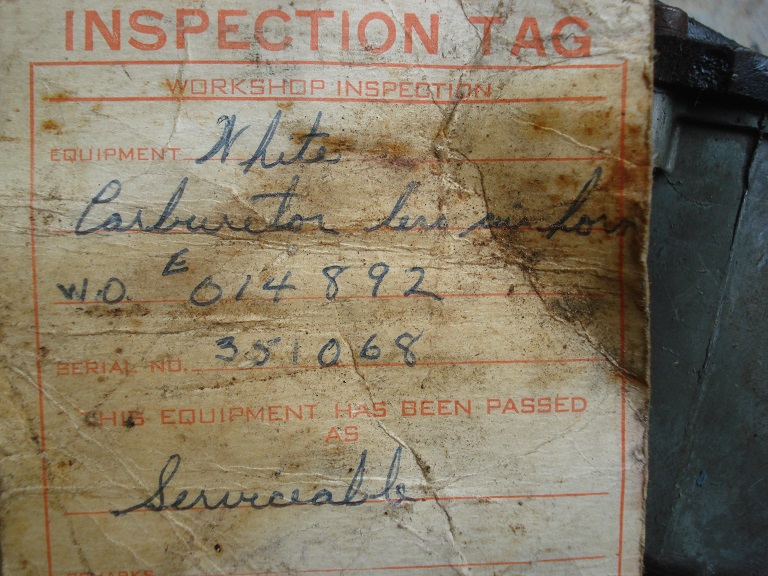 INSPECTION TAG
WORKSHOP INSPECTION
EQUIPMENT White
Carburetor less air horn
W.O. E 014892
SERIAL NO. 351068
THIS EQUIPMENT HAS BEEN PASSED
AS
Serviceable
REMARKS